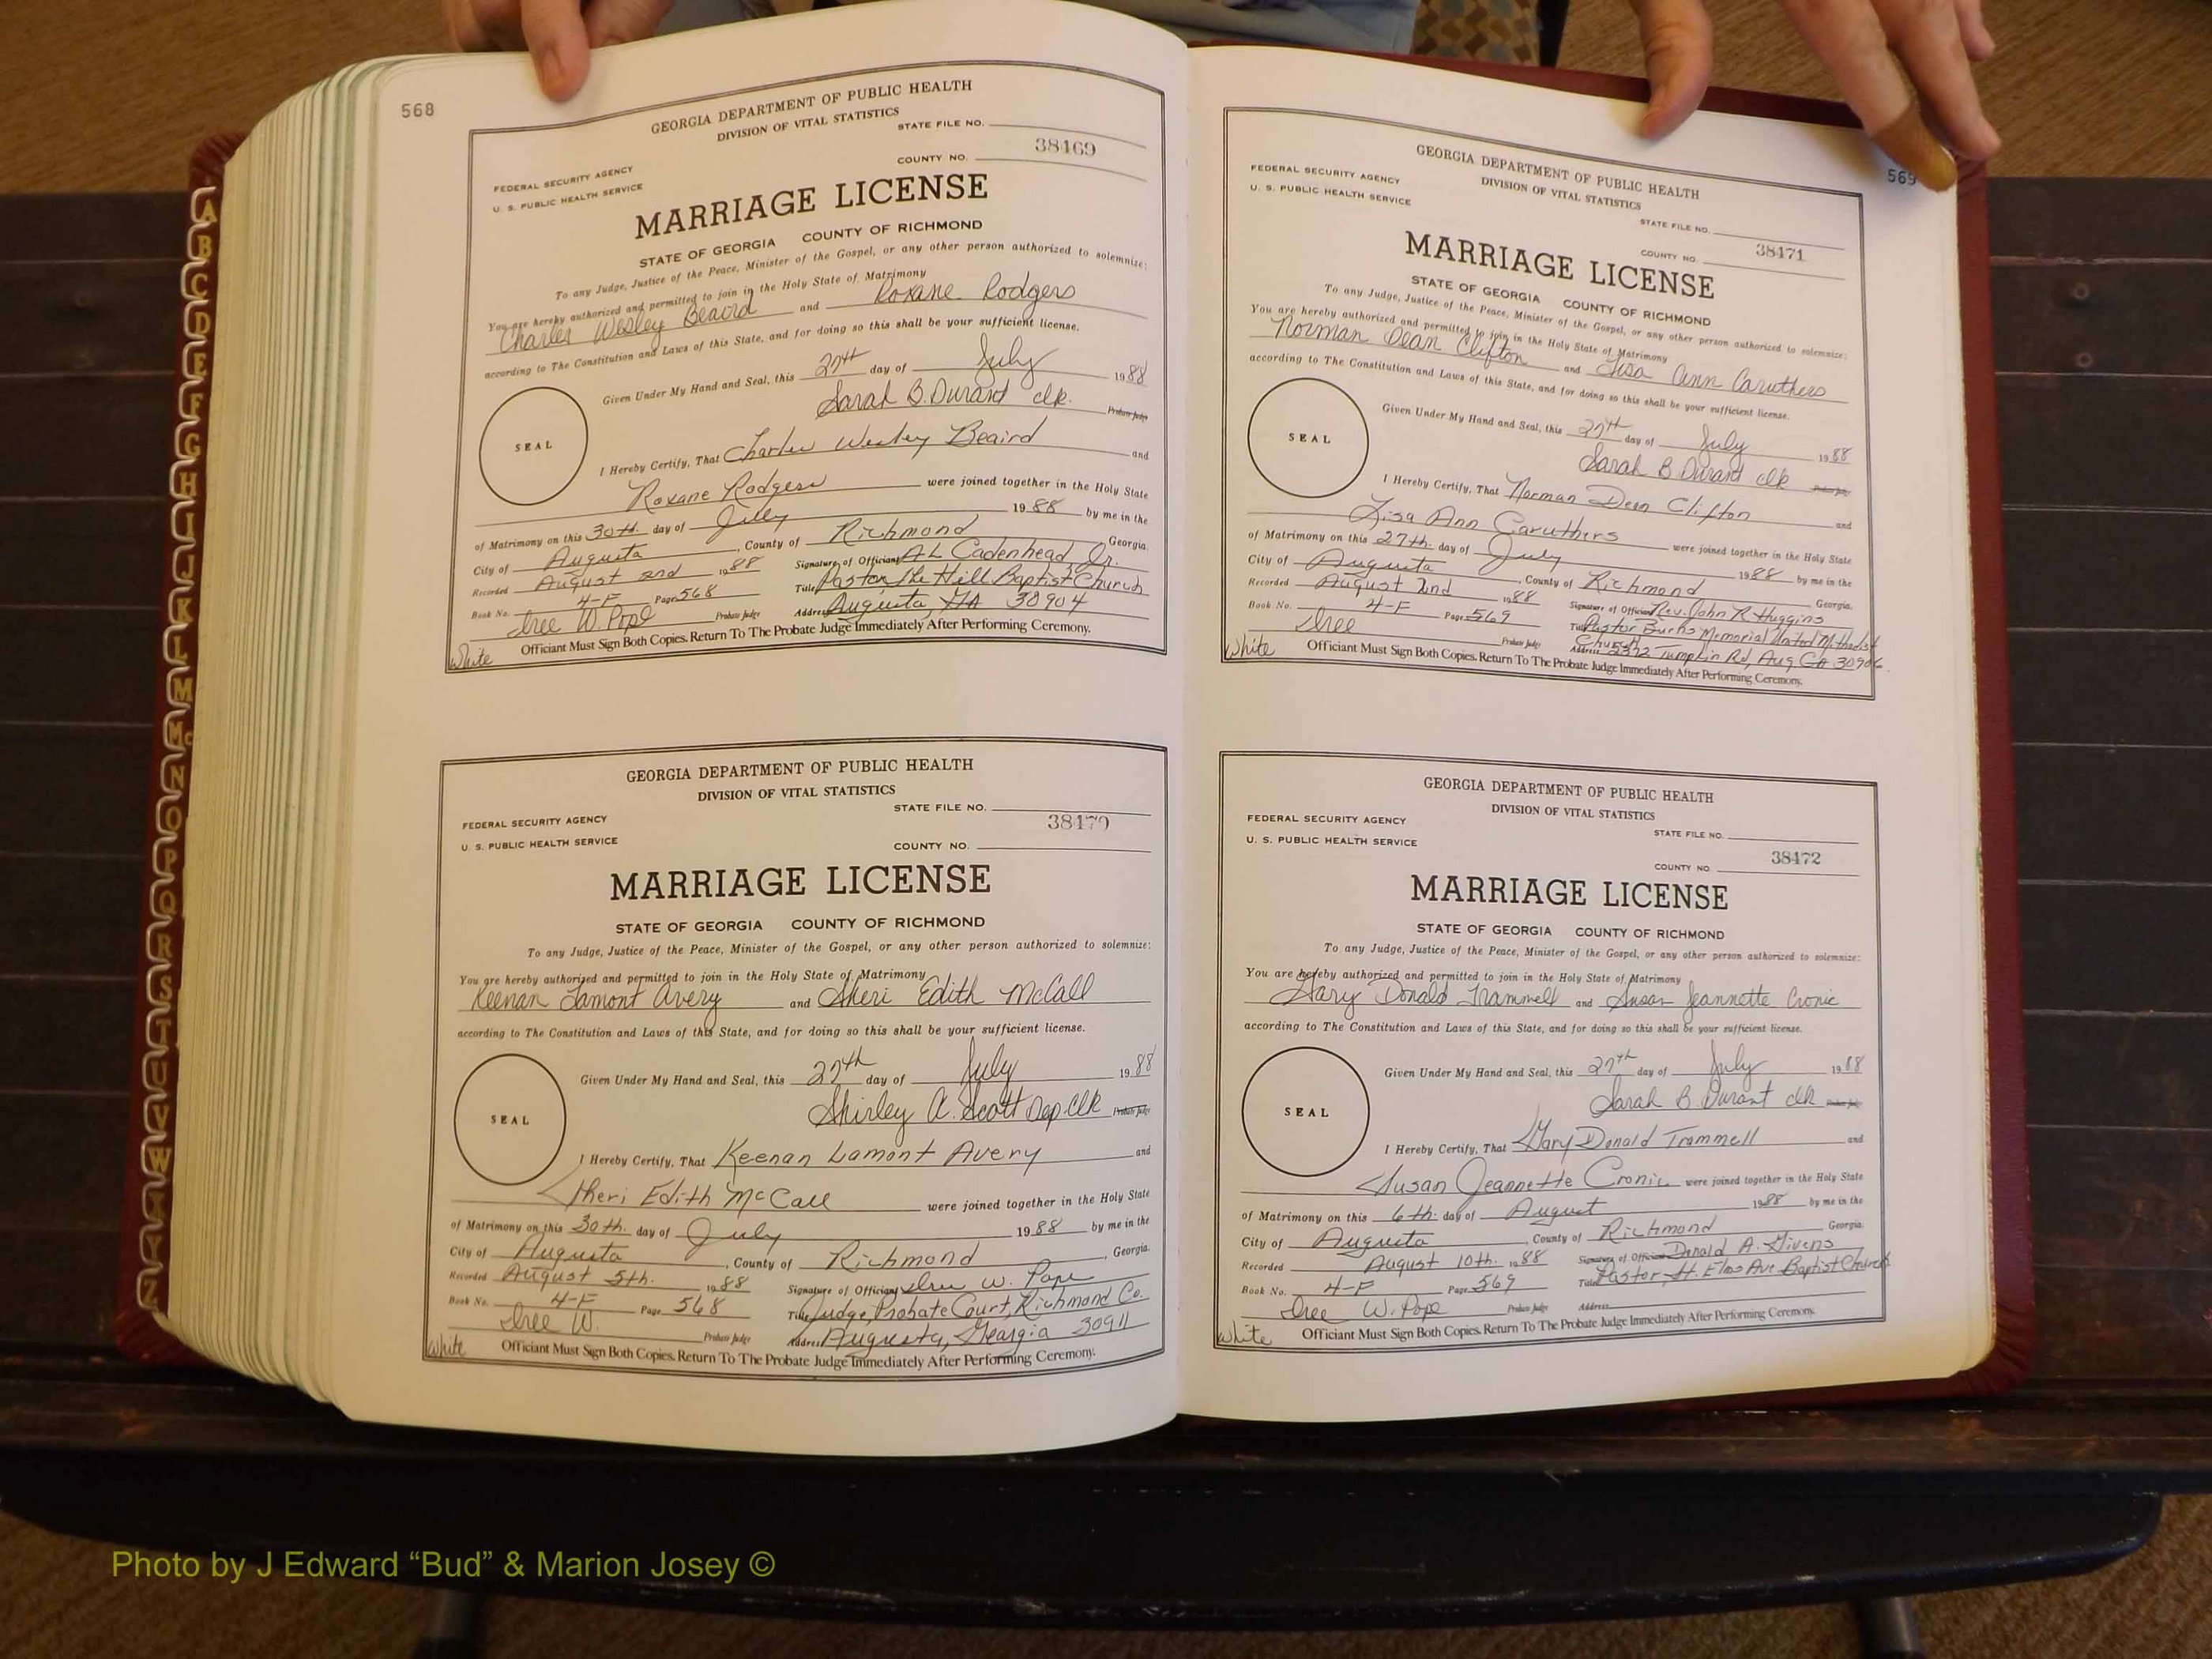 568
GEORGIA DEPARTMENT OF PUBLIC HEALTH
DIVISION OF VITAL STATISTICS
STATE FILE NO.
38469
FEDERAL SECURITY AGENCY
COUNTY NO.
U. S. PUBLIC HEALTH SERVICE
MARRIAGE LICENSE
STATE OF GEORGIA COUNTY OF RICHMOND
To any Judge, Justice of the Peace, Minister of the Gospel, or any other person authorized to solemnize:
You are hereby authorized and permitted to join in the Holy State of Matrimony
Charles Wesley Beaird and Roxane Rodgers
according to The Constitution and Laws of this State, and for doing so this shall be your sufficient license.
Given Under My Hand and Seal, this 27th day of July 1988
Sarah B. Durant clk. Probate Judge
SEAL
I Hereby Certify, That Charles Wesley Beaird and
Roxane Rodgers were joined together in the Holy State
of Matrimony on this 30th. day of July 1988 by me in the
City of Augusta, County of Richmond Georgia.
Recorded August 2nd 1988 Signature of Officiant A L Cadenhead Jr.
Book No. 4-F Page 568 Title Pastor, The Hill Baptist Church
Isree W. Pope Probate Judge Address Augusta, GA 30904
Officiant Must Sign Both Copies. Return To The Probate Judge Immediately After Performing Ceremony.
White
GEORGIA DEPARTMENT OF PUBLIC HEALTH
DIVISION OF VITAL STATISTICS
STATE FILE NO.
38470
FEDERAL SECURITY AGENCY
U. S. PUBLIC HEALTH SERVICE
COUNTY NO.
MARRIAGE LICENSE
STATE OF GEORGIA COUNTY OF RICHMOND
To any Judge, Justice of the Peace, Minister of the Gospel, or any other person authorized to solemnize:
You are hereby authorized and permitted to join in the Holy State of Matrimony
Keenan Lamont Avery and Sheri Edith McCall
according to The Constitution and Laws of this State, and for doing so this shall be your sufficient license.
Given Under My Hand and Seal, this 27th day of July 1988
Shirley A. Scott Dep. Clk Probate Judge
SEAL
I Hereby Certify, That Keenan Lamont Avery and
Sheri Edith McCall were joined together in the Holy State
of Matrimony on this 30th. day of July 1988 by me in the
City of Augusta, County of Richmond, Georgia.
Recorded August 5th. 1988 Signature of Officiant Isree W. Pope
Book No. 4-F Page 568 Title Judge, Probate Court, Richmond Co.
Isree W. Probate Judge Address Augusta, Georgia 30911
Officiant Must Sign Both Copies. Return To The Probate Judge Immediately After Performing Ceremony.
White
569
GEORGIA DEPARTMENT OF PUBLIC HEALTH
DIVISION OF VITAL STATISTICS
FEDERAL SECURITY AGENCY
U. S. PUBLIC HEALTH SERVICE
STATE FILE NO.
38471
COUNTY NO.
MARRIAGE LICENSE
STATE OF GEORGIA COUNTY OF RICHMOND
To any Judge, Justice of the Peace, Minister of the Gospel, or any other person authorized to solemnize:
You are hereby authorized and permitted to join in the Holy State of Matrimony
Norman Dean Clifton and Lisa Ann Caruthers
according to The Constitution and Laws of this State, and for doing so this shall be your sufficient license.
Given Under My Hand and Seal, this 27th day of July 1988
Sarah B. Durant clk Probate Judge
SEAL
I Hereby Certify, That Norman Dean Clifton and
Lisa Ann Caruthers were joined together in the Holy State
of Matrimony on this 27th. day of July 1988 by me in the
City of Augusta, County of Richmond Georgia.
Recorded August 2nd 1988 Signature of Officiant Rev. John R Huggins
Book No. 4-F Page 569 Title Pastor Burns Memorial United Methodist
Isree Probate Judge Church
Address 2372 Lumpkin Rd, Aug, GA 30906
Officiant Must Sign Both Copies. Return To The Probate Judge Immediately After Performing Ceremony.
White
GEORGIA DEPARTMENT OF PUBLIC HEALTH
DIVISION OF VITAL STATISTICS
FEDERAL SECURITY AGENCY
STATE FILE NO.
U. S. PUBLIC HEALTH SERVICE
38472
COUNTY NO.
MARRIAGE LICENSE
STATE OF GEORGIA COUNTY OF RICHMOND
To any Judge, Justice of the Peace, Minister of the Gospel, or any other person authorized to solemnize:
You are hereby authorized and permitted to join in the Holy State of Matrimony
Gary Donald Trammell and Susan Jeannette Cronic
according to The Constitution and Laws of this State, and for doing so this shall be your sufficient license.
Given Under My Hand and Seal, this 27th day of July 1988
Sarah B. Durant clk Probate Judge
SEAL
I Hereby Certify, That Gary Donald Trammell and
Susan Jeannette Cronic were joined together in the Holy State
of Matrimony on this 6th. day of August 1988 by me in the
City of Augusta, County of Richmond Georgia.
Recorded August 10th. 1988 Signature of Officiant Donald A. Givens
Book No. 4-F Page 569 Title Pastor, St. Elmo Ave. Baptist Church
Isree W. Pope Probate Judge Address
Officiant Must Sign Both Copies. Return To The Probate Judge Immediately After Performing Ceremony.
White
A
B
C
D
E
F
G
H
I
J
K
L
M
Mc
N
O
P
Q
R
S
T
U
V
W
X
Y
Z
Photo by J Edward “Bud” & Marion Josey ©